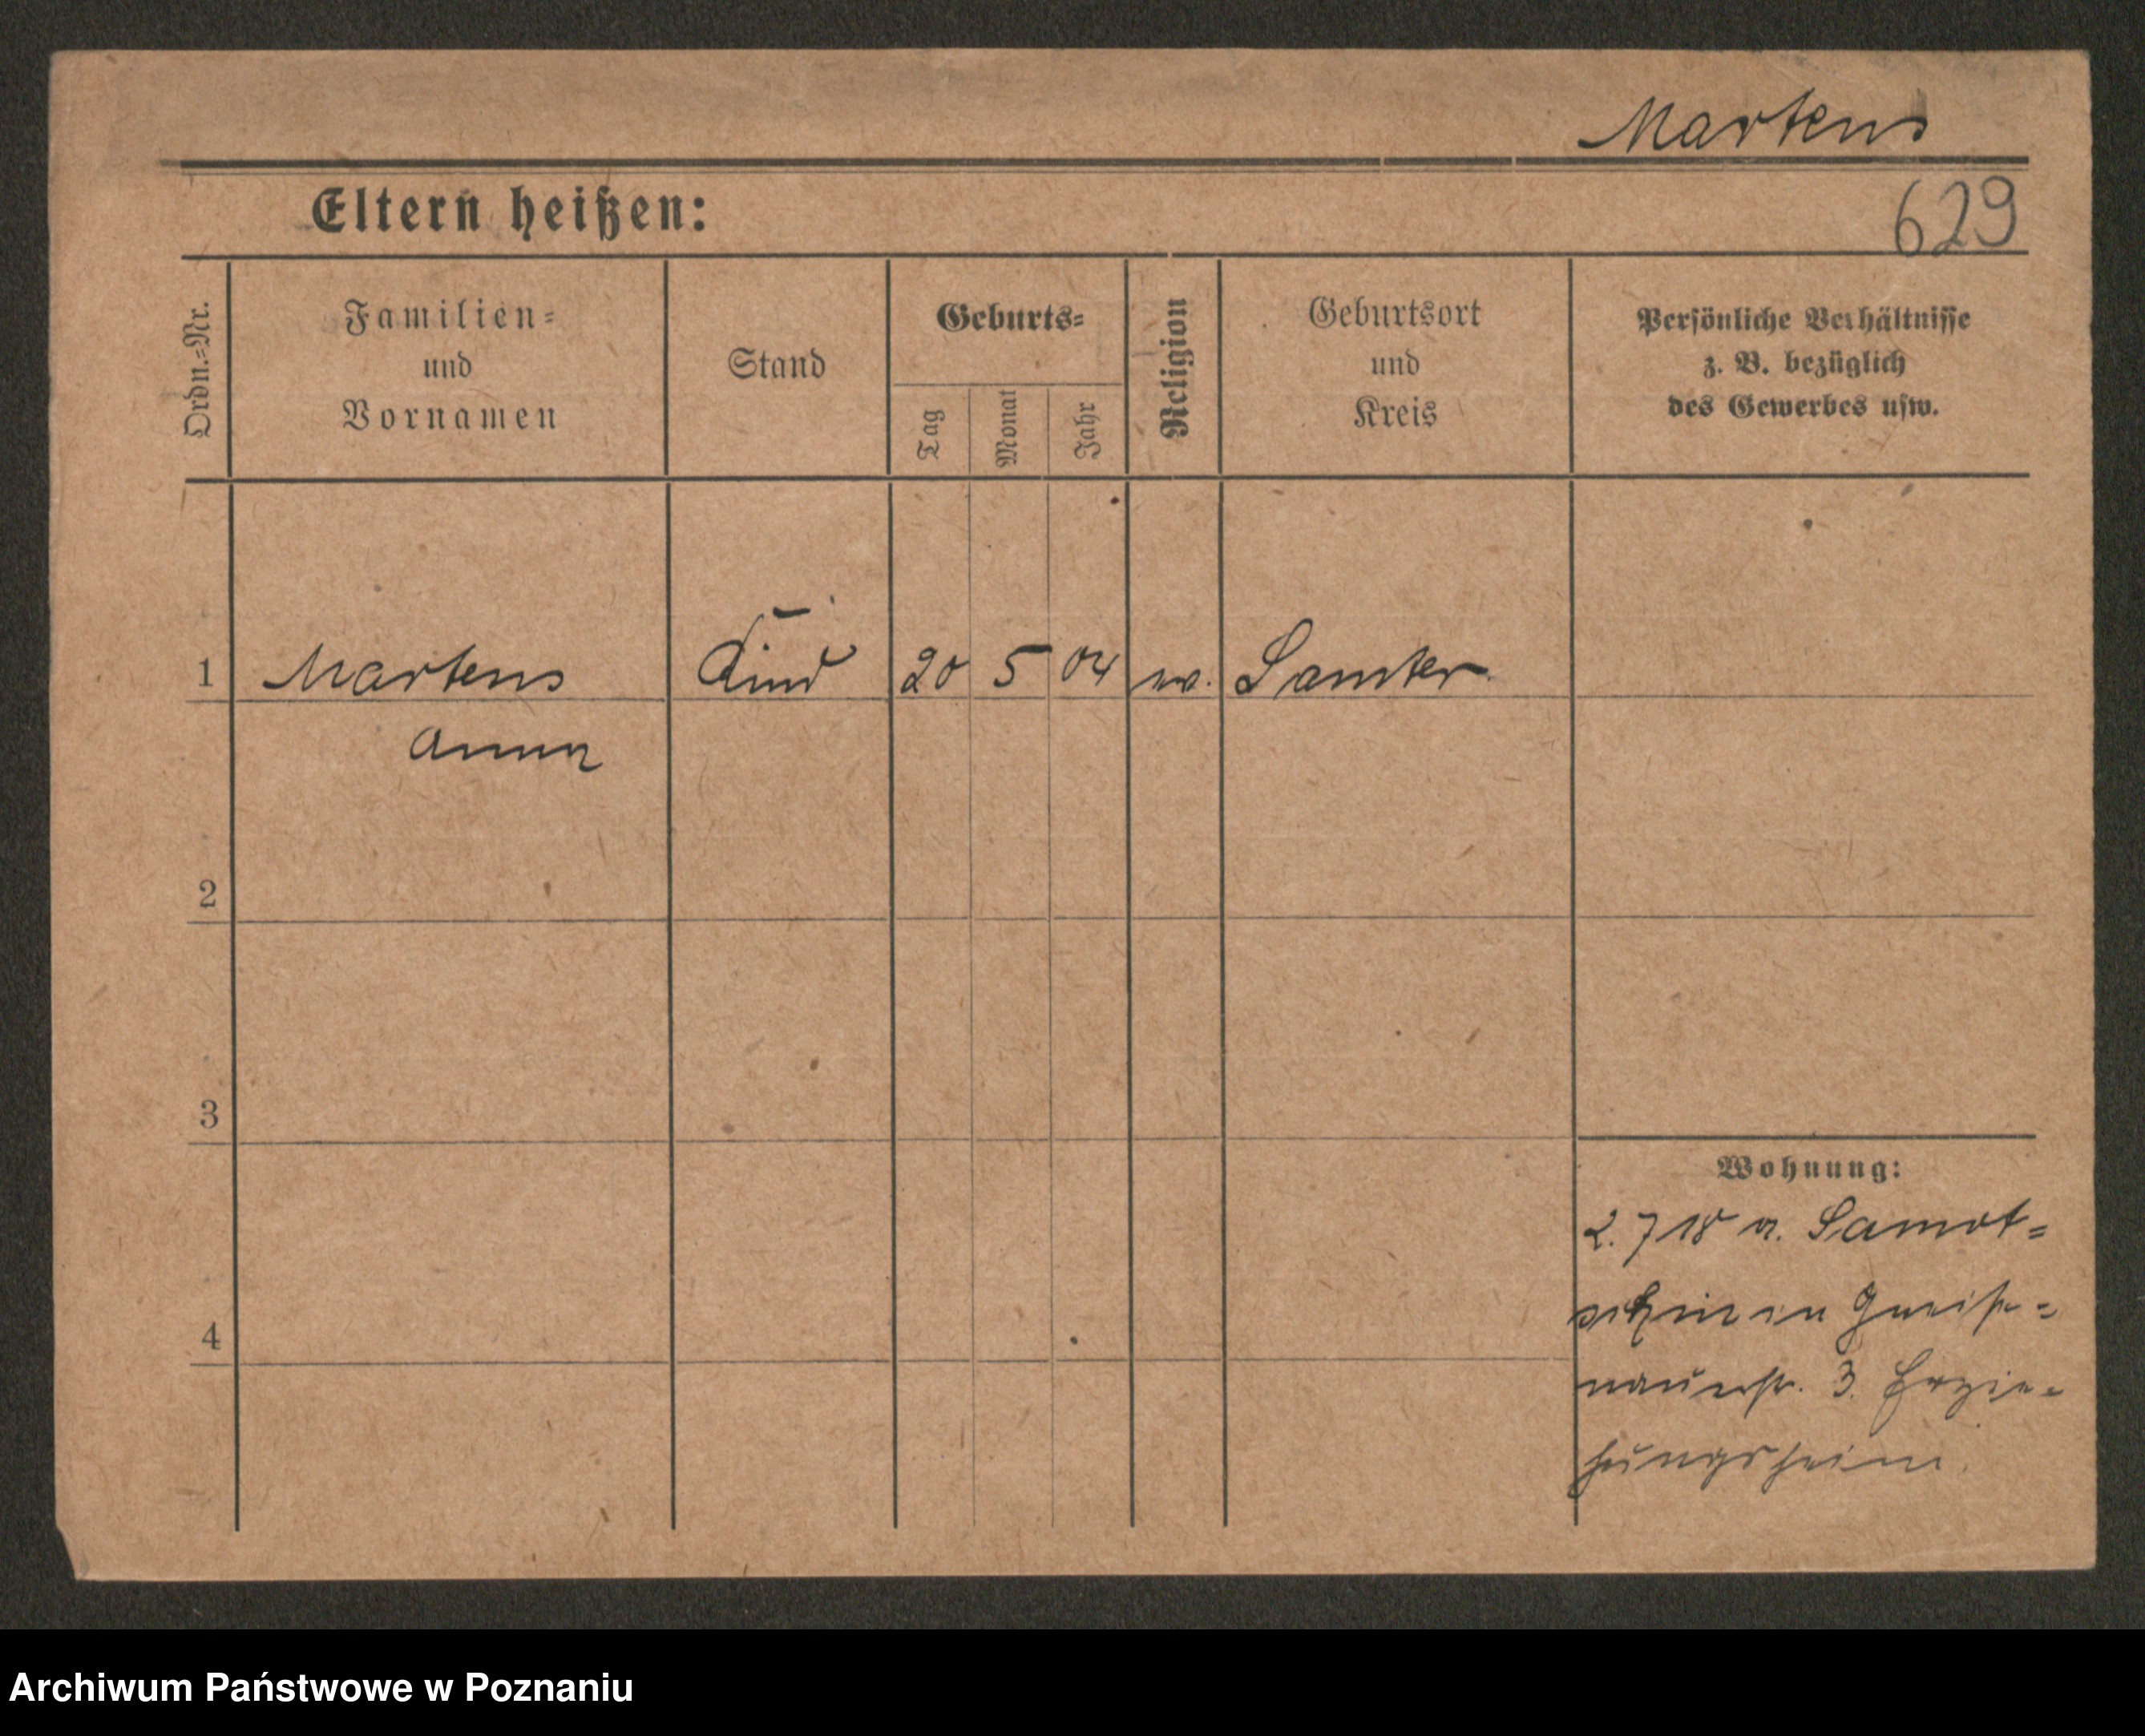 Martens
Eltern heißen:
629
Ordn.=Nr.
Familien=
und
Vornamen
Stand
Geburts=
Tag
Monat
Jahr
Religion
Geburtsort
und
Kreis
Persönliche Verhältnisse
z. B. bezüglich
des Gewerbes usw.
1 Martens Kind 20 5 04 ev. Samter
Anna
2
3
4
Wohnung:
2. 7 18 a. Samot=
schin in Gneise=
nauerstr. 3. Erzie=
hungsheim.
Archiwum Państwowe w Poznaniu